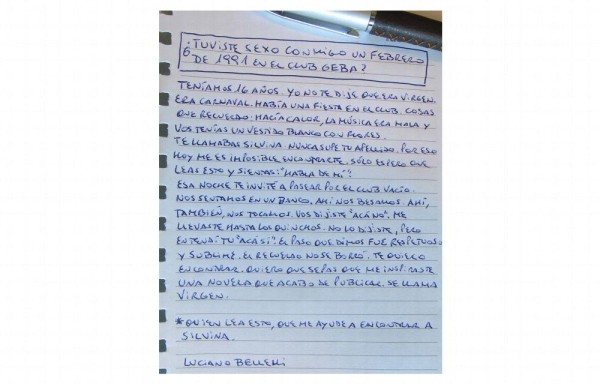 ¿TUVISTE SEXO CONMIGO UN FEBRERO
DE 1991 EN EL CLUB GEBA?
TENÍAMOS 16 AÑOS. YO NO TE DIJE QUE ERA VIRGEN.
ERA CARNAVAL. HABÍA UNA FIESTA EN EL CLUB. COSAS
QUE RECUERDO: HACÍA CALOR, LA MÚSICA ERA MALA Y
VOS TENÍAS UN VESTIDO BLANCO CON FLORES.
TE LLAMABAS SILVINA. NUNCA SUPE TU APELLIDO. POR ESO
HOY ME ES IMPOSIBLE ENCONTRARTE. SÓLO ESPERO QUE
LEAS ESTO Y SIENTAS: "HABLA DE MÍ".
ESA NOCHE TE INVITÉ A PASEAR POR EL CLUB VACÍO.
NOS SENTAMOS EN UN BANCO. AHÍ NOS BESAMOS. AHÍ,
TAMBIÉN, NOS TOCAMOS. VOS DIJISTE "ACÁ NO". ME
LLEVASTE HASTA LOS QUINCHOS. NO LO DIJISTE, PERO
ENTENDÍ TU "ACÁ SÍ". EL PASO QUE DIMOS FUE RESPETUOSO
Y SUBLIME. EL RECUERDO NO SE BORRÓ. TE QUIERO
ENCONTRAR. QUIERO QUE SEPAS QUE ME INSPIRASTE
UNA NOVELA QUE ACABO DE PUBLICAR. SE LLAMA
VIRGEN.
*QUIEN LEA ESTO, QUE ME AYUDE A ENCONTRAR A
SILVINA.
LUCIANO